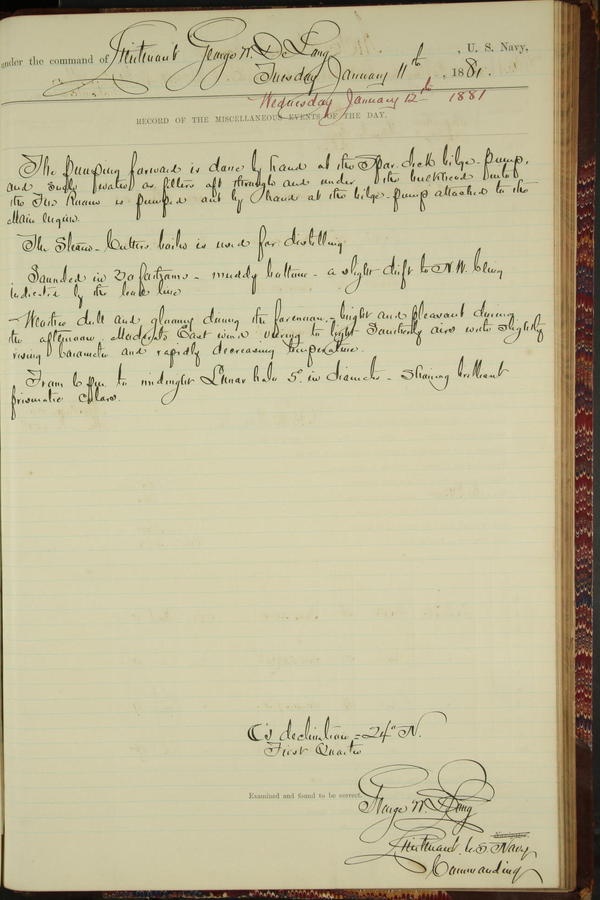 under the command of Lieutenant George W. De Long, U. S. Navy,
Tuesday January 11th, 1881.
Wednesday January 12th 1881
RECORD OF THE MISCELLANEOUS EVENTS OF THE DAY.
The pumping forward is done by hand at the Spar deck bilge-pump,
and such water as filters aft through and under the bulkhead into
the Fire Room is pumped out by hand at the bilge-pump attached to the
Main engine.
The Steam-Cutters boiler is used for distilling.
Sounded in 20 fathoms - muddy bottom - a slight drift to N.W. being
indicated by the lead line
Weather dull and gloomy during the forenoon - bright and pleasant during
the afternoon. Moderate East wind veering to light Southerly airs with slightly
rising barometer and rapidly decreasing temperature.
From 6 p.m. to midnight Lunar halo 5° in diameter - showing brilliant
prismatic colors.
☾'s declination = 24° N.
First Quarter
Examined and found to be correct.
George W. De Long
Navigator.
Lieutenant U.S. Navy
Commanding